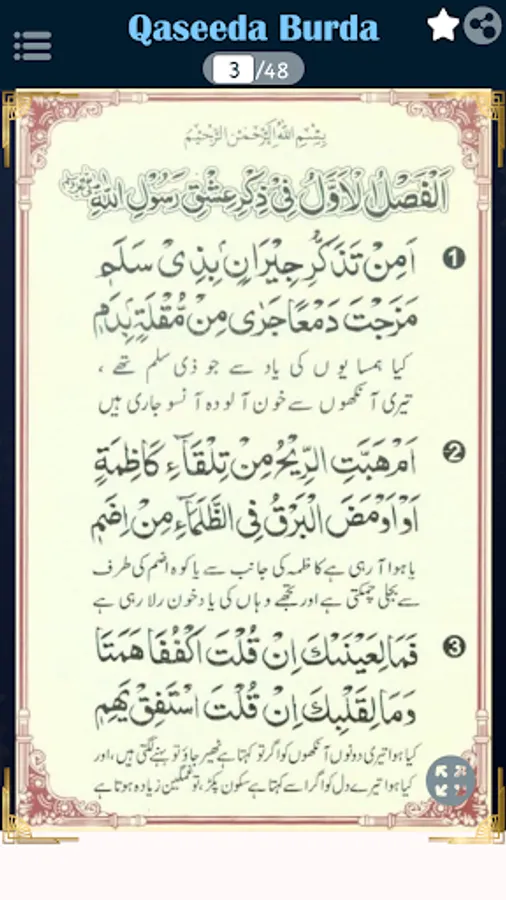 Qaseeda Burda
3/48
بِسْمِ اللهِ الرَّحْمٰنِ الرَّحِيْمِ
اَلْفَصْلُ الْاَوَّلُ فِيْ ذِكْرِ عِشْقِ رَسُوْلِ اللهِ ﷺ
1 اَمِنْ تَذَكُّرِ جِيْرَانٍ بِذِيْ سَلَمٍ
مَزَجْتَ دَمْعًا جَرٰى مِنْ مُّقْلَةٍ بِدَمٍ
کیا ہمسایوں کی یاد سے جو ذی سلم تھے ،
تیری آنکھوں سے خون آلودہ آنسو جاری ہیں
2 اَمْ هَبَّتِ الرِّيْحُ مِنْ تِلْقَآءِ كَاظِمَةٍ
اَوْ اَوْمَضَ الْبَرْقُ فِي الظَّلْمَآءِ مِنْ اِضَمٍ
یا ہوا آ رہی ہے کاظمہ کی جانب سے یا کوہ اضم کی طرف
سے بجلی چمکتی ہے اور تجھے وہاں کی یاد خون رلا رہی ہے
3 فَمَا لِعَيْنَيْكَ اِنْ قُلْتَ اكْفُفَا هَمَتَا
وَمَا لِقَلْبِكَ اِنْ قُلْتَ اسْتَفِقْ يَهِمٍ
کیا ہوا تیری دونوں آنکھوں کو اگر تو کہتا ہے ٹھہر جاؤ تو بہنے لگتی ہیں، اور
کیا ہوا تیرے دل کو اگر اسے کہتا ہے سکون پکڑ، تو غمگین زیادہ ہوتا ہے